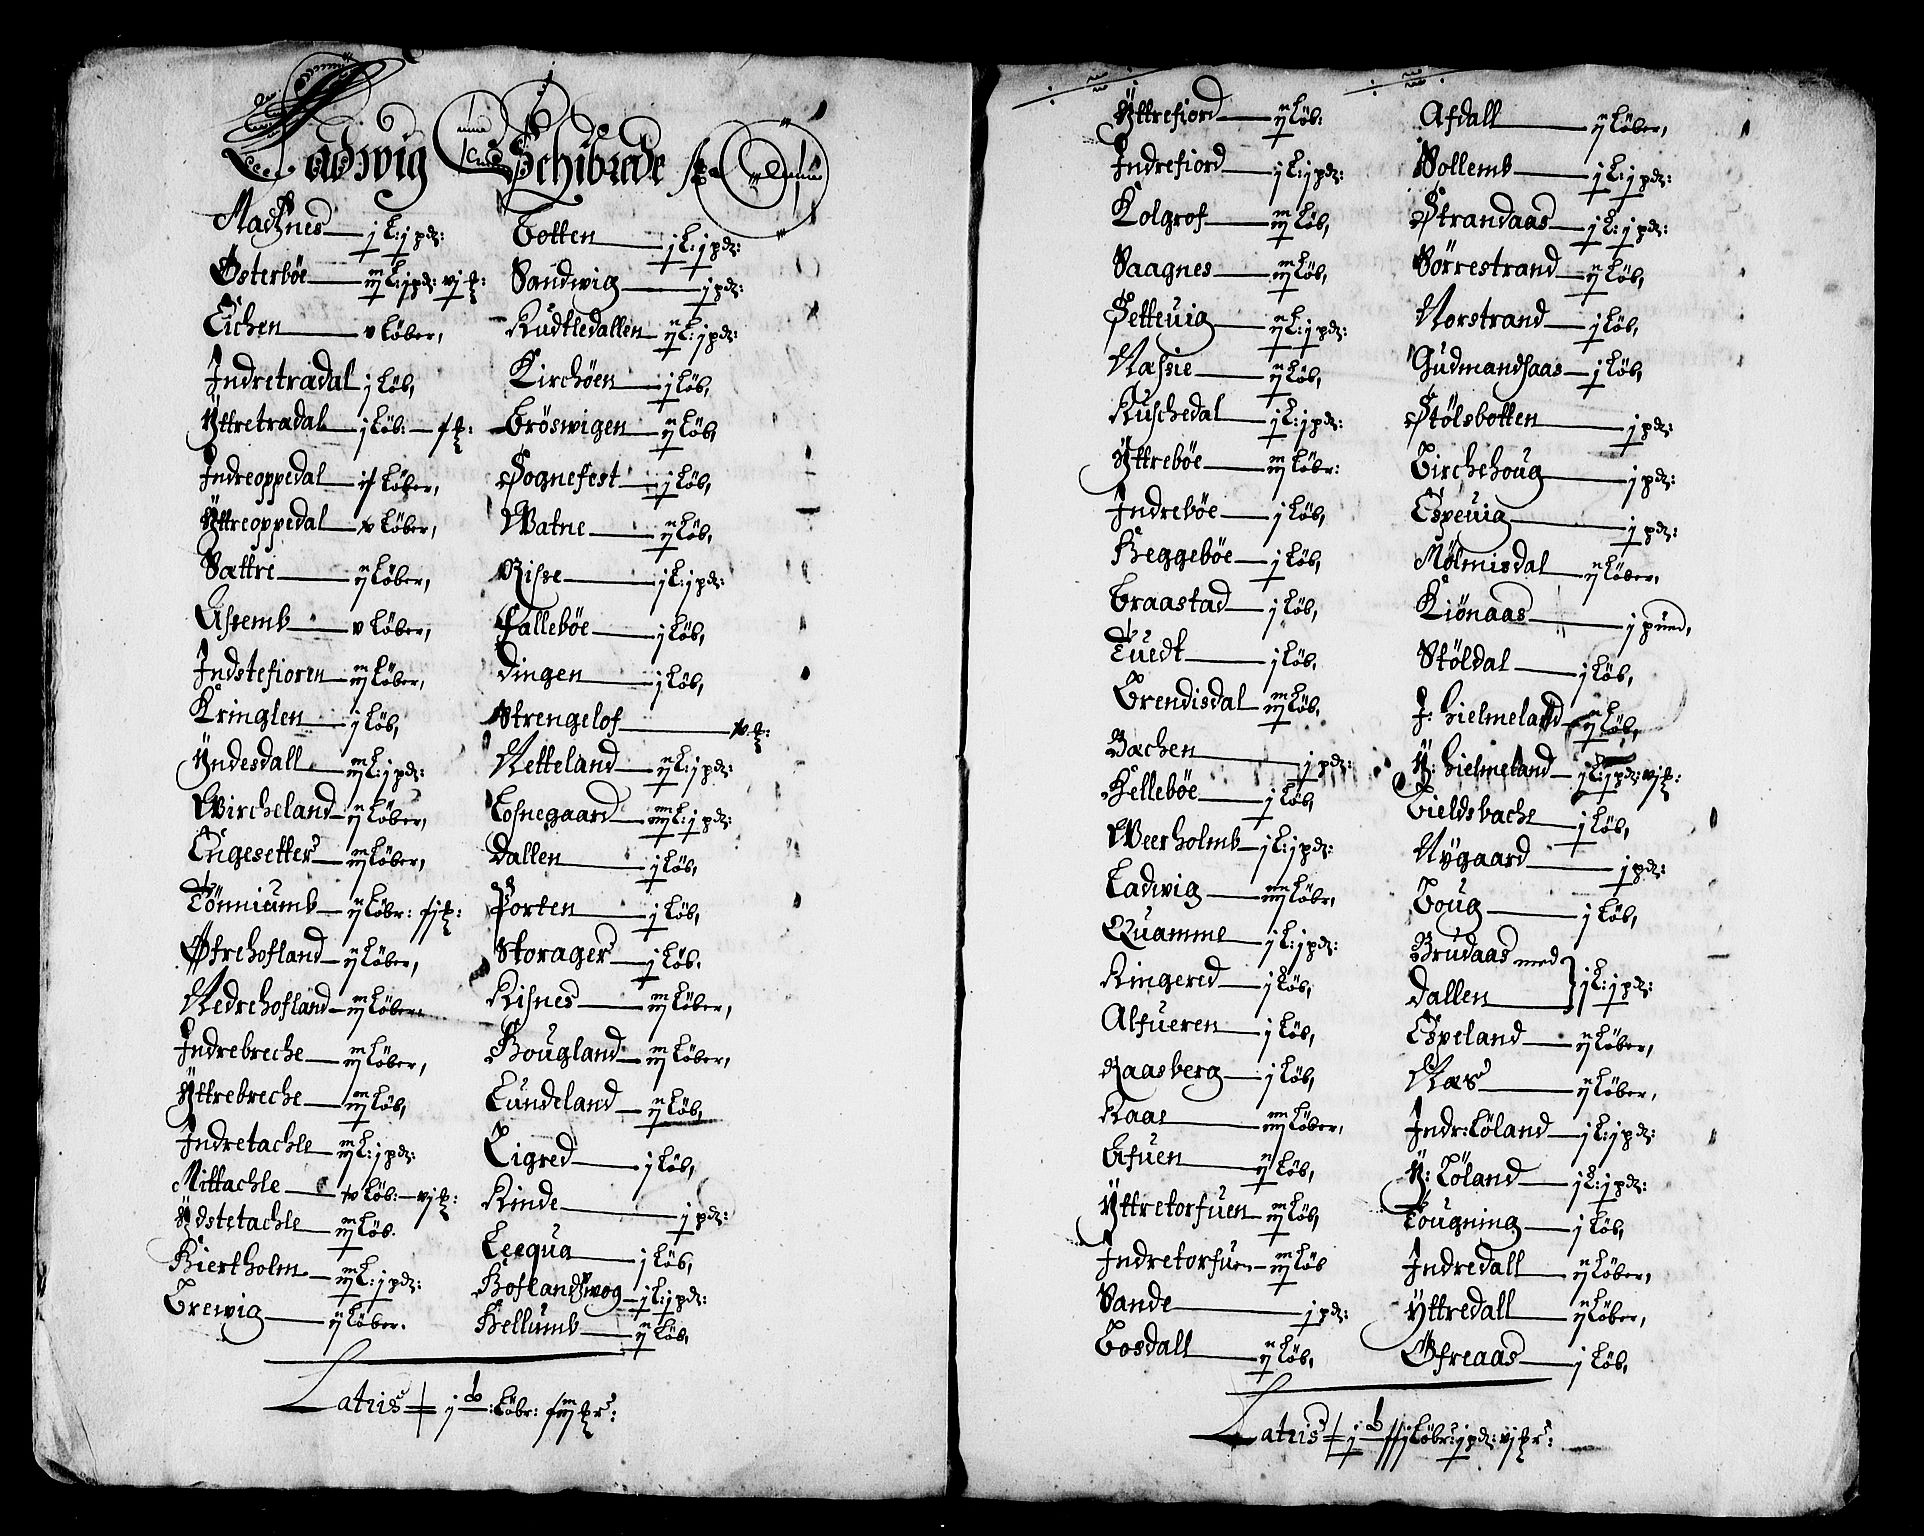 Ladwig Schibrede
Machnes — j L: j pd:
Österböe — iij L: j pd: vj #:
Eichen — v Löber,
Indretradal j Löb,
Yttretradal — j Löb: —
Indreoppedal — Löber,
Yttreoppedal — Löber,
Sættre — ij Löber,
Assemb — v Löber,
Indstefioren — iij Löber,
Kringlen — j Löb,
Yndesdall — iij L: j pd:
Wircheland — ij Löber,
Engesetter — iij Löber,
Tönniumb — ij Löbr:
Öfrehofland — ij Löber,
Nedrehofland — iij Löber.
Indrebreche — iij Löber,
Yttrebreche — iij Löb,
Indretachle — iij L: j pd:
Mittachle — Löb: — vj
Ydstetachle — iij Löb.
Hiertholm — iij L: j pd:
Trewig — ij Löber.
Totten — j L: j pd:
Sandwig — j pd:
Rudtledallen — ij L: j pd:
Kirchöen — j Löb,
Bröswigen — ij Löb,
Sognefest — j Löb,
Watne — ij Löb,
Risse — j L: j pd:
Falleböe — j Löb,
Dingen — j Löb,
Strengelof —
Netteland — ij L: j pd:
Losnegaard — iiij L: j pd:
Dallen — j Löb,
Porten — j Löb,
Storager — j Löb.
Risnes — iij Löber,
Hougland — iij Löber,
Lundeland — ij Löb,
Eigred — j Löb,
Rinde — j pd:
Leequa — j Löb,
Hoflandswog — j L: j pd:
Hellumb — ij Löb,
Latris j Löbr:
Yttrefiord — ij Löb:
Indrefiord — j L: j pd:
Kolgrof — iij Löb,
Saagnes — iij Löb,
Setteuig — ij L: j pd:
Nassie — ij Löb,
Ruschedal — j L: j pd:
Yttreböe — iij Löbr:
Indreböe — j Löb,
Heggeböe — j Löb,
Braastad — j Löb,
Tuedt — j Löb.
Brendisdal iij Löb,
Bachen — j pd:
Helleböe — j Löb,
Weerholmb — j L: j pd:
Ladwig — iiij Löbr,
Quamme — j L: j pd:
Ringered — j Löb,
Alfueren — j Löb,
Raasberg — j Löb,
Raae — iiij Löber,
Efuen — ij Löb,
Yttretorfuen — iij Löb,
Indretorfuen — iij Löb
Sande — j pd:
Bosdall — ij Löb,
Afdall — ij Löber,
Sollemb — j L: j pd:
Strandaas — j L: j pd:
Sörrestrand — ij Löb,
Norstrand — j Löb,
Gudmandsaas — j Löb,
Stölsbotten — j pd:
Birchehoug — j pd:
Espeuig — j pd:
Mölmisdal — ij Löber.
Kiönaas — j pund,
Stöldal — j Löb,
J: hielmeland — ij Löb,
Y: hielmeland — j L: j pd: vj #:
Tieldsbache — j Löb,
Nygaard — j pd:
Houg — j Löb,
Brudaas med
Dallen — } j L: j pd:
Espeland — ij Löber,
Næs — ij Löber,
Indr: Löland — j L: j pd:
Y: Löland — j L: j pd:
Tougning — j Löb,
Indredall — ij Löber,
Yttredall — ij Löber,
Öfreaas — j Löb,
Latris j Löbr: j pd: vj